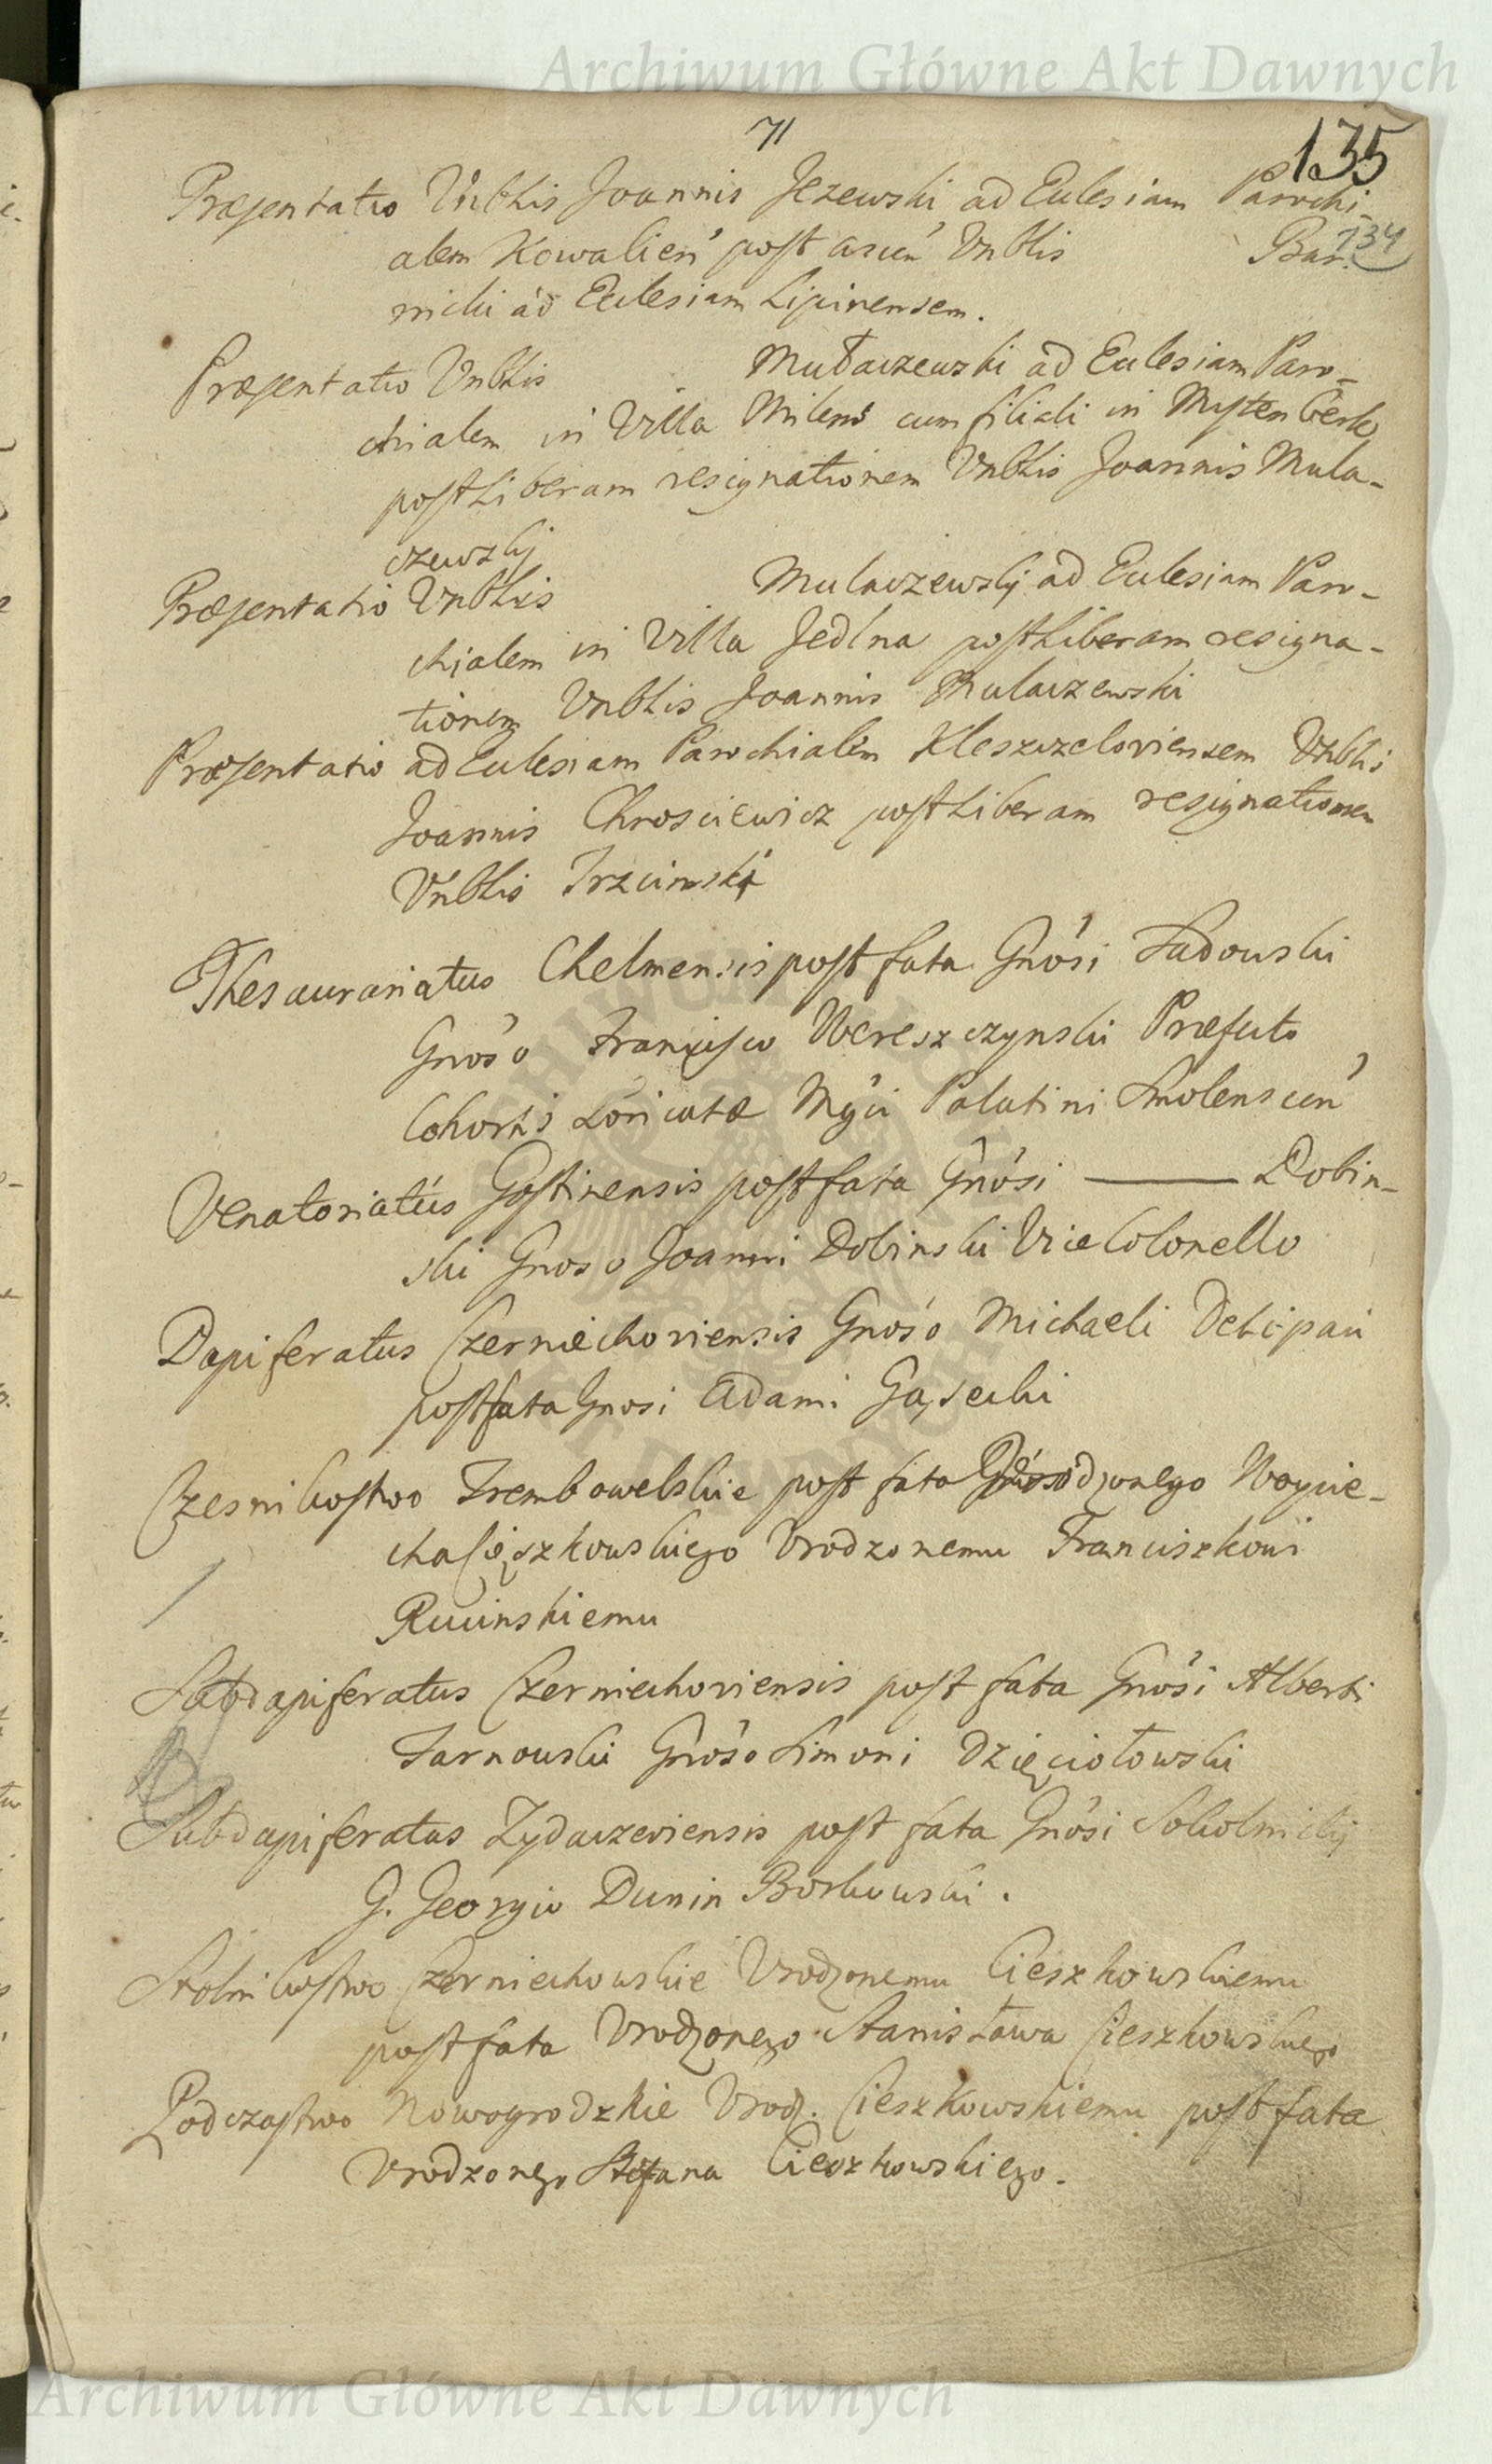 Archiwum Główne Akt Dawnych
71
135
Præsentatio Vnblis Joannis Jezewski ad Ecclesiam Parochi-
134
alem Kowalien' post ascen' Vnblis Bar.
nicki ad Ecclesiam Lipinensem.
Præsentatio Vnblis Mułaczewski ad Ecclesiam Paro-
chialem in Villa Milens cum filiali in
post Liberam resignationem Vnblis Joannis Mula-
czewskij
Præsentatio Vnblis Mulaczewskij ad Ecclesiam Paro-
chialem in Villa Jedlna post Liberam resigna-
tionem Vnblis Joannis Mulaczewski
Præsentatio ad Ecclesiam Parochialem Kleszczeloviensem Vnblis
Joannis Chrosciewicz post Liberam resignationem
Vnblis Trzcinski
Thesaurariatus Chelmensis post fata Gnosi Sadowski
Gnoso Francisco Wereszczynski Præfecto
Cohortis Loricatæ Mgci Palatini Smolenscen'
Venatoriatus Gostinensis post fata Gnosi — Dobin-
ski Gnoso Joanni Dobinski Vice Colonello
Dapiferatus Czerniechoviensis Gnoso Michaeli
post fata Gnosi Adami Gąsecki
Czesnikostwo Trembowelskie post fata Vrodzonego Woycie-
cha Cieszkowskiego Vrodzonemu Franciszkowi
Rucinskiemu
Subdapiferatus Czerniechoviensis post fata Gnosi Alberti
Tarnowski Gnoso Simoni Dzięciołowski
Subdapiferatus Zydaczeviensis post fata Gnosi Sokolnickij
G. Georgio Dunin Borkowski.
Stolnikostwo Czerniechowskie Vrodzonemu Cieszkowskiemu
post fata Vrodzonego Stanisława Cieszkowskiego
Podczastwo Nowogrodzkie Vrodz. Cieszkowskiemu post fata
Vrodzonego Stefana Cieszkowskiego.
Archiwum Główne Akt Dawnych